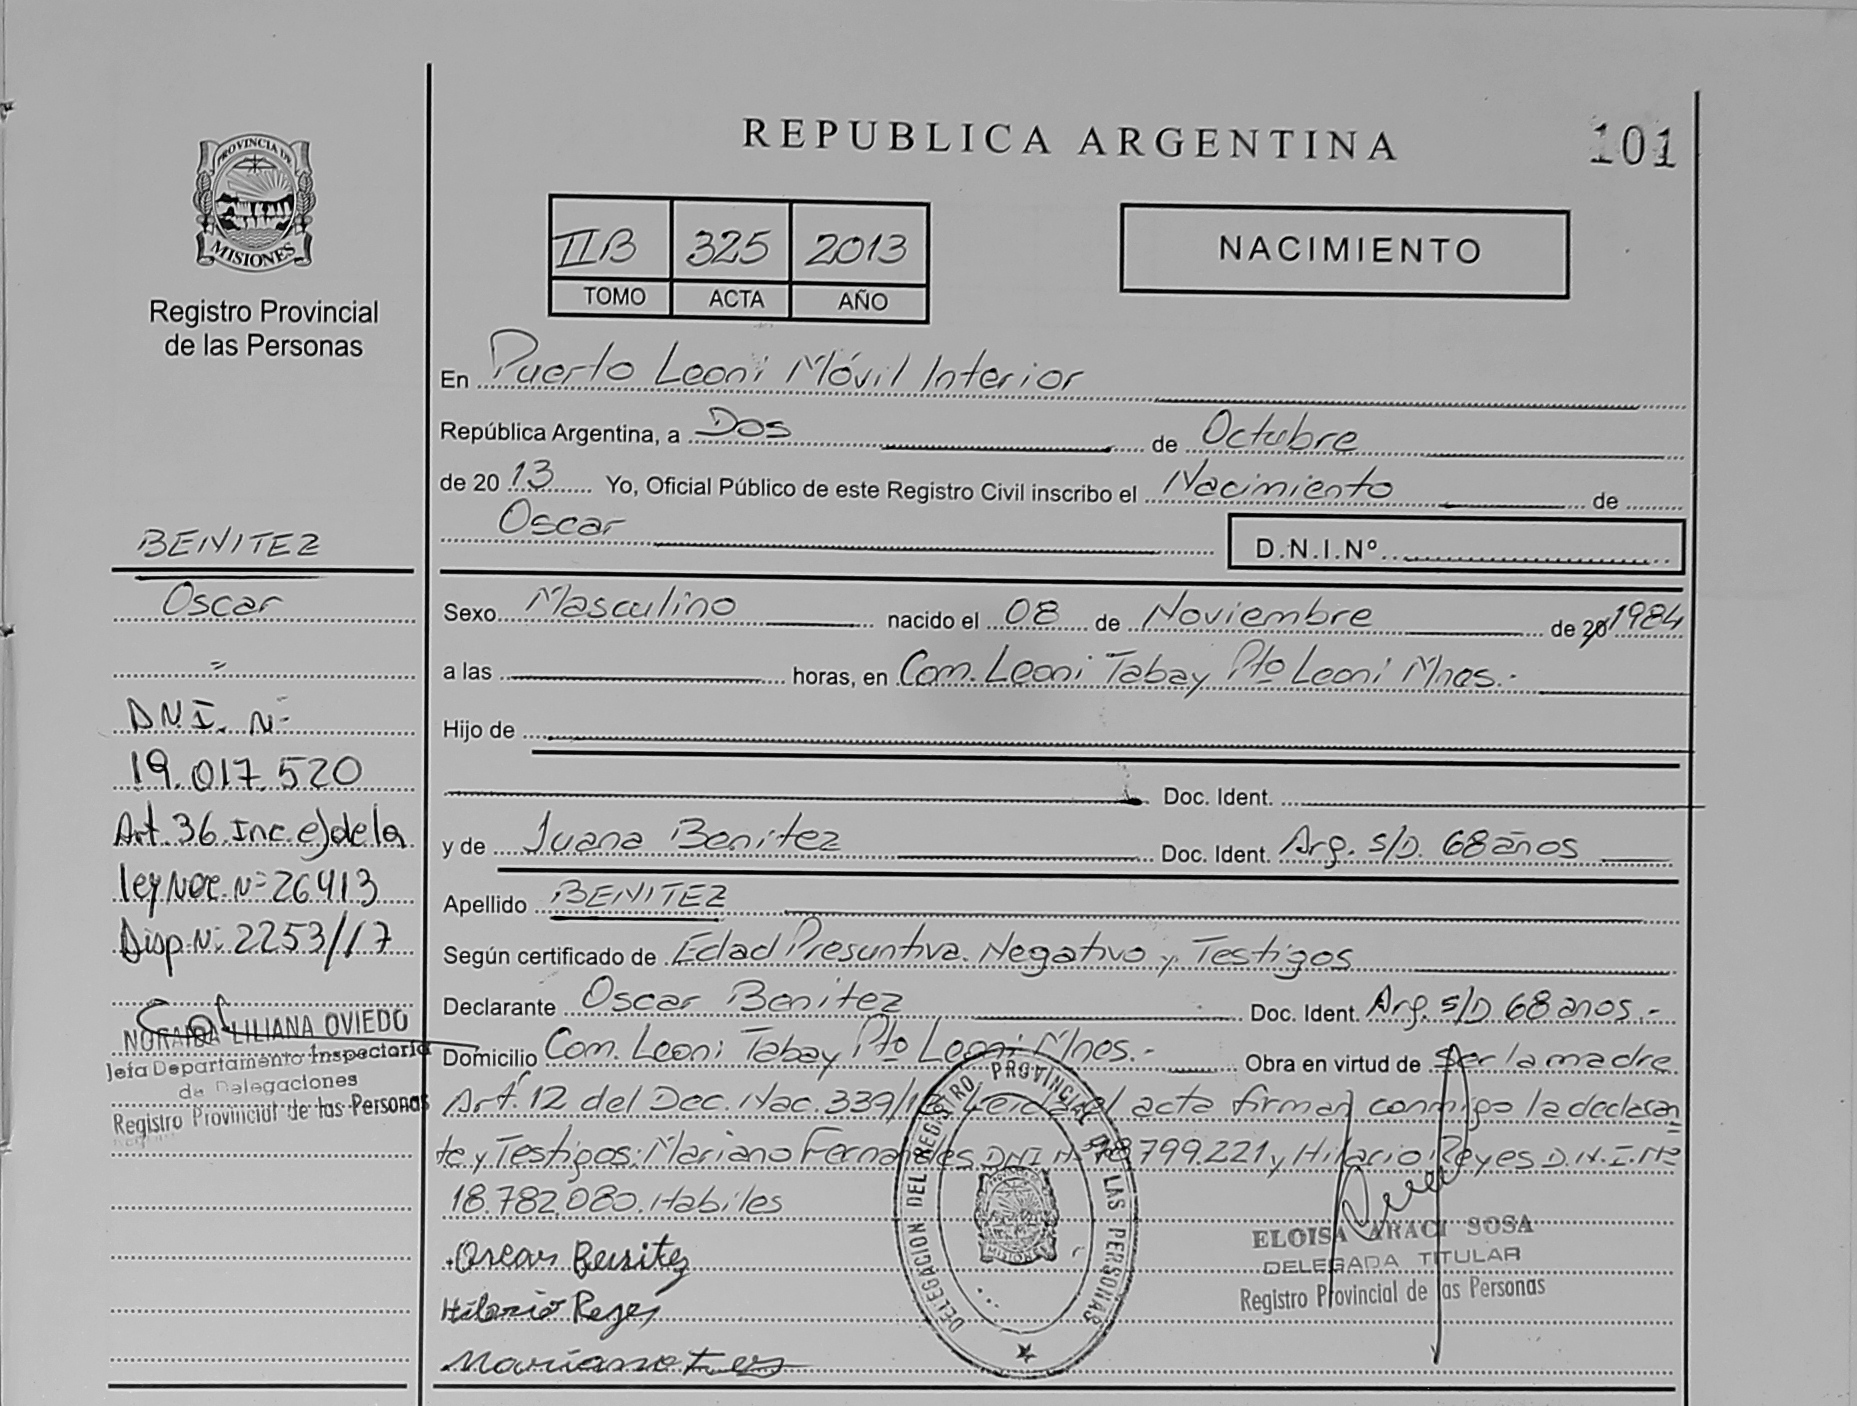 REPUBLICA ARGENTINA
101
PROVINCIA DE
MISIONES
Registro Provincial
de las Personas
IIB 325 2013
TOMO ACTA AÑO
NACIMIENTO
En Puerto Leoni Móvil Interior
República Argentina, a Dos de Octubre
de 2013 Yo, Oficial Público de este Registro Civil inscribo el Nacimiento de
Oscar D.N.I.Nº
BENITEZ
Oscar
D.N.I. Nº
19.017.520
Art. 36. Inc. e) de la
ley Nac. Nº 26413
Disp. Nº 2253/17
NORAIDA LILIANA OVIEDO
Jefa Departamento Inspectoria
de Delegaciones
Registro Provincial de las Personas
Sexo Masculino nacido el 08 de Noviembre de 20 1984
a las horas, en Com. Leoni Tabay Pto Leoni Mnes.-
Hijo de
Doc. Ident.
y de Juana Benitez Doc. Ident. Arg. s/D. 68 años
Apellido BENITEZ
Según certificado de Edad Presuntiva. Negativo y Testigos
Declarante Oscar Benitez Doc. Ident. Arg. s/D 68 anos.-
Domicilio Com. Leoni Tabay Pto Leoni Mnes.- Obra en virtud de Ser la madre
Art. 12 del Dec. Nac. 339/13 Leida el acta firman conmigo la declaran
te y Testigos: Mariano Fernandes DNI Nº 18799.221 y Hilario Reyes D.N.I. Nº
18.782.080. Habiles
Oscar Benitez
Hilario Reyes
DELEGACION DEL REGISTRO PROVINCIAL DE LAS PERSONAS
ELOISA ARACI SOSA
DELEGADA TITULAR
Registro Provincial de las Personas